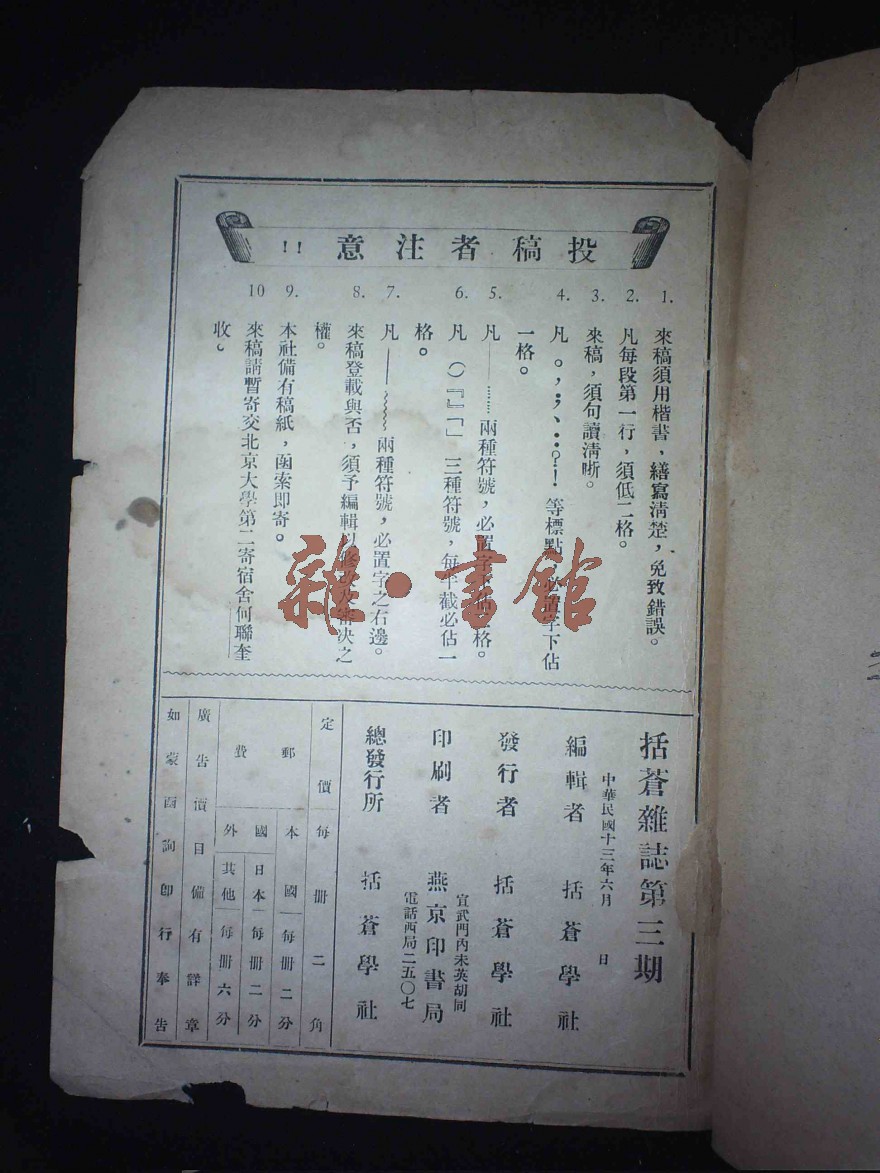 投稿者注意!!
1. 來稿須用楷書,繕寫清楚,免致錯誤。
2. 凡每段第一行,須低二格。
3. 來稿,須句讀清晰。
4. 凡 。,;、:?! 等標點,必置字下佔
一格。
5. 凡——……兩種符號,必置字下佔二格。
6. 凡()『』「」三種符號,每半截必佔一
格。
7. 凡——﹏﹏兩種符號,必置字之右邊。
8. 來稿登載與否,須予編輯以修改及審決之
權。
9. 本社備有稿紙,函索即寄。
10 來稿請暫寄交北京大學第二寄宿舍何聯奎
收。
括蒼雜誌第三期
中華民國十三年六月 日
編輯者 括蒼學社
發行者 括蒼學社
宣武門內未英胡同
印刷者 燕京印書局
電話西局二五〇七
總發行所 括蒼學社
定價每冊二角
郵費
本國每冊二分
國外
日本每冊二分
其他每冊六分
廣告價目備有詳章
如蒙函詢即行奉告
雜·書館